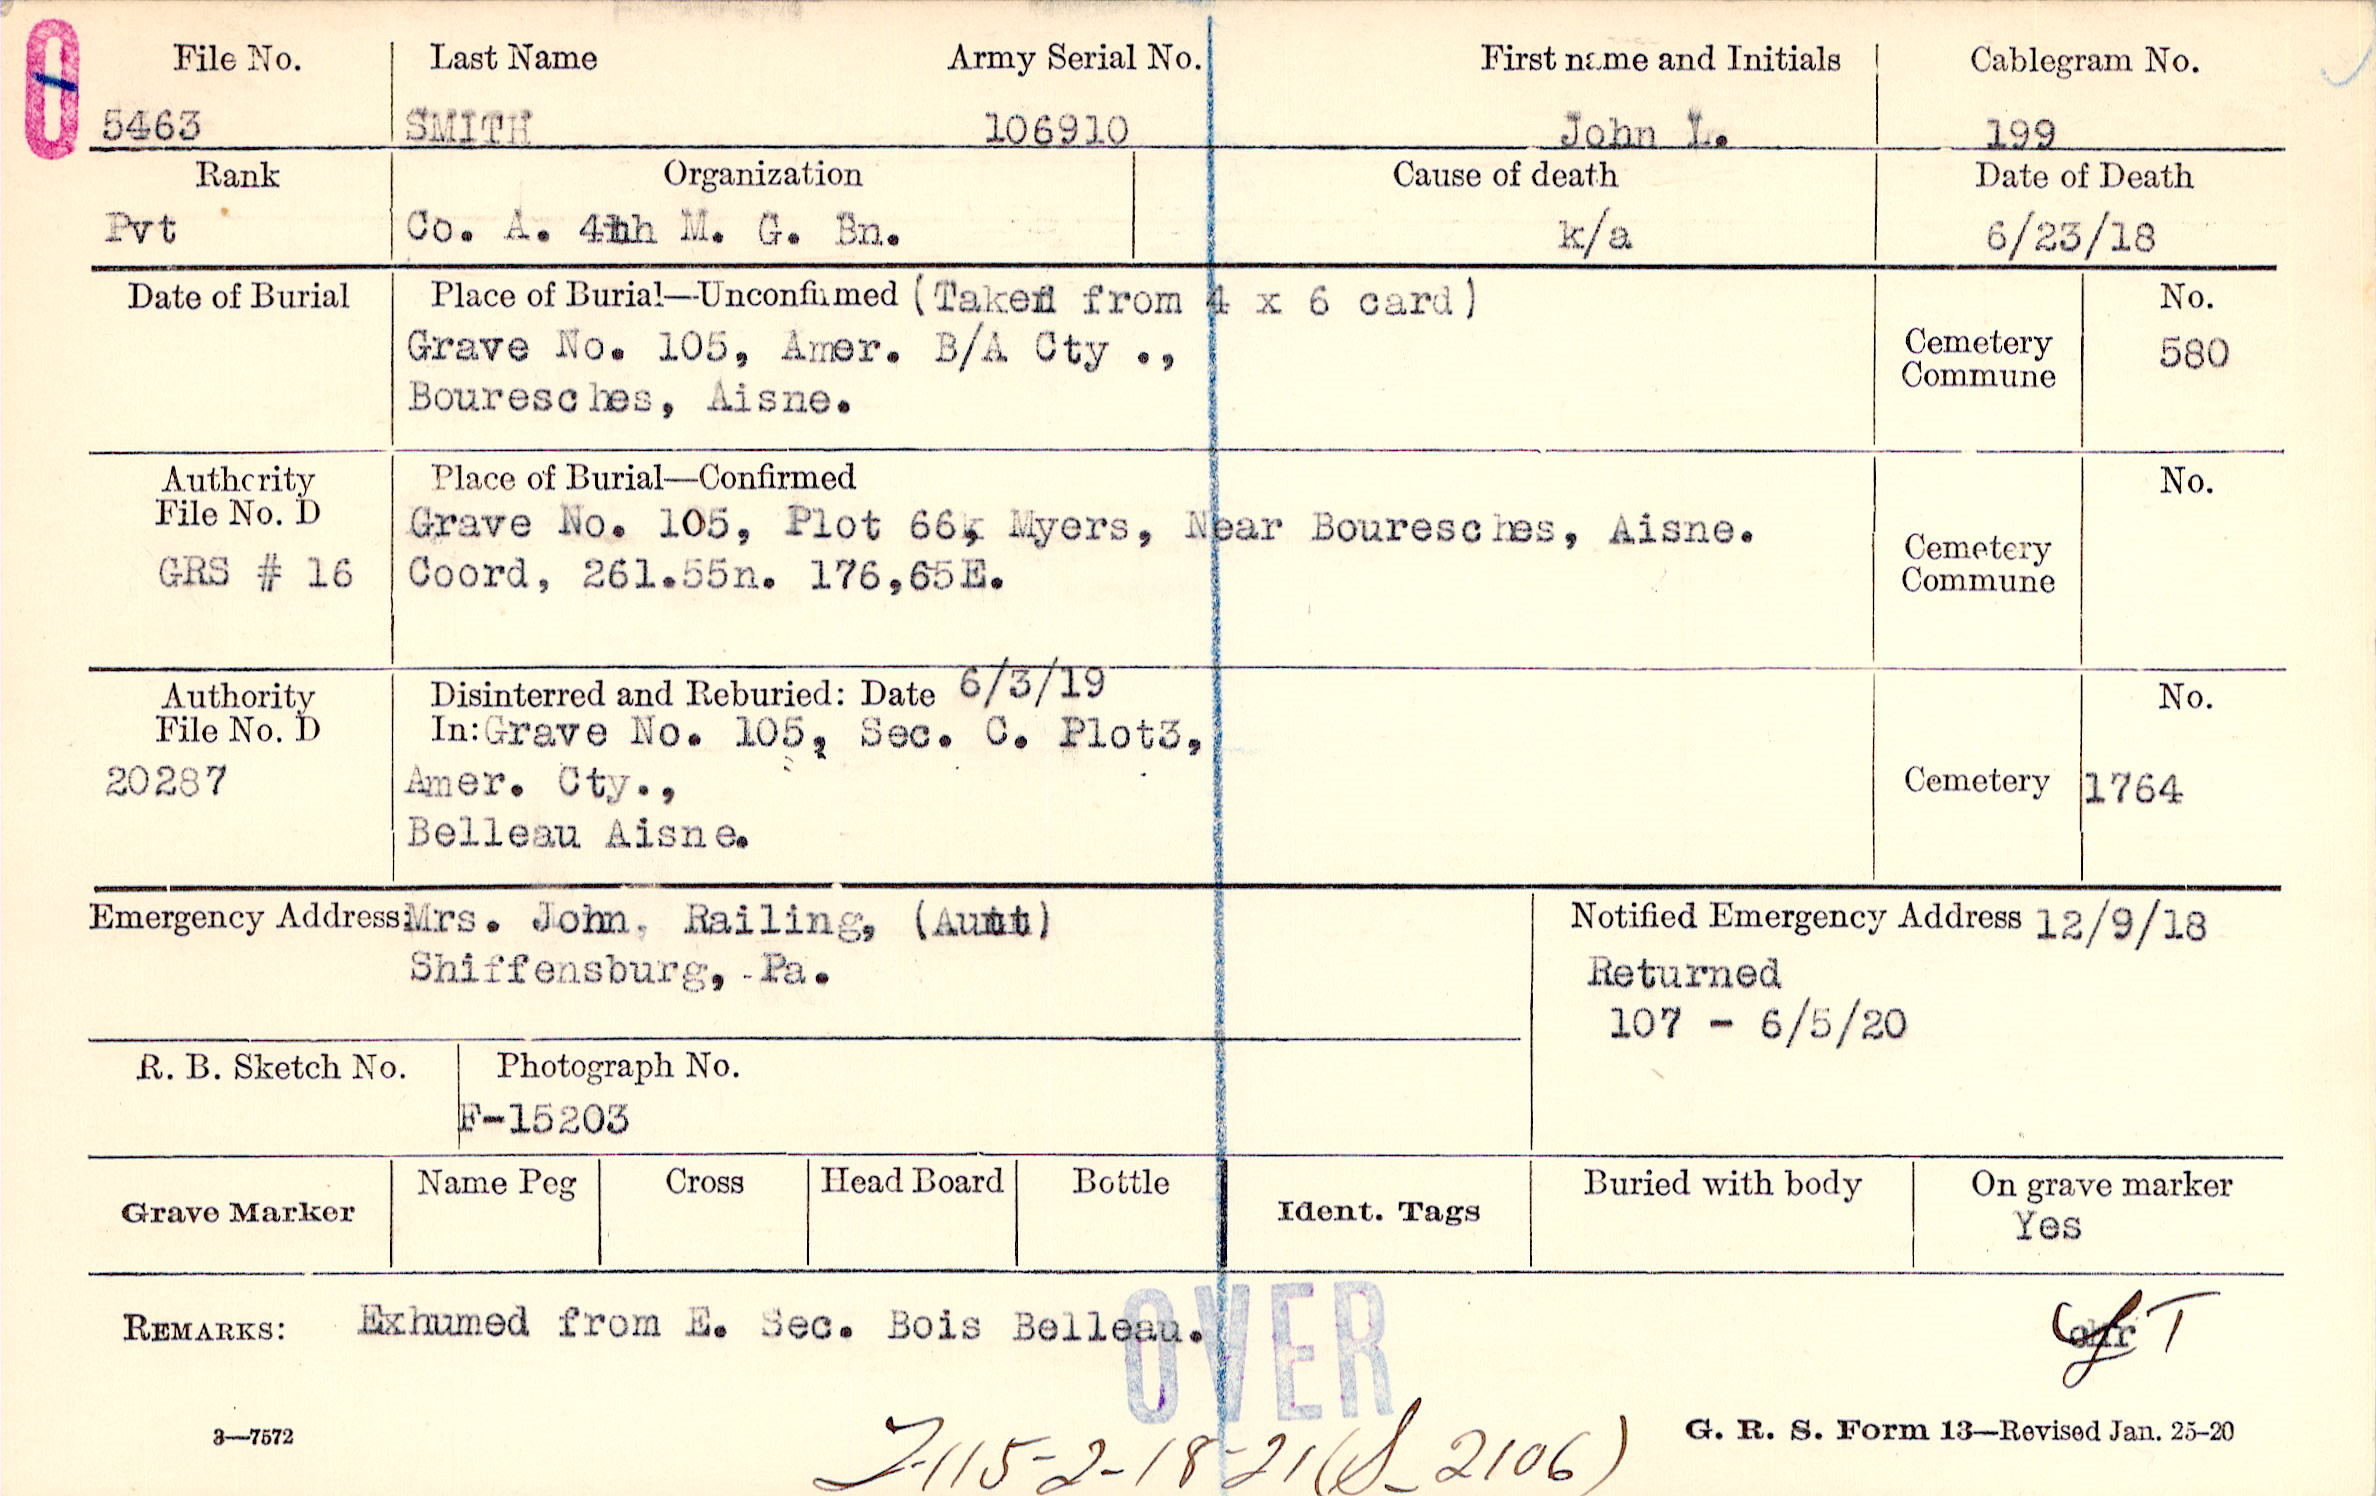 File No. Last Name Army Serial No. First name and Initials Cablegram No.
5463 SMITH 106910 John L. 199
Rank Organization Cause of death Date of Death
Pvt Co. A. 4th M. G. Bn. k/a 6/23/18
Date of Burial Place of Burial—Unconfirmed (Taken from 4 x 6 card) No.
Grave No. 105, Amer. B/A Cty ., Cemetery 580
Bouresches, Aisne. Commune
Authority Place of Burial—Confirmed No.
File No. D Grave No. 105, Plot 66, Myers, Near Bouresches, Aisne. Cemetery
GRS # 16 Coord, 261.55n. 176,65E. Commune
Authority Disinterred and Reburied: Date 6/3/19 No.
File No. D In: Grave No. 105, Sec. C. Plot3,
20287 Amer. Cty., Cemetery 1764
Belleau Aisne.
Emergency Address: Mrs. John, Railing, (Aunt) Notified Emergency Address 12/9/18
Shiffensburg, Pa. Returned
107 - 6/5/20
R. B. Sketch No. Photograph No.
F-15203
Grave Marker Name Peg Cross Head Board Bottle Ident. Tags Buried with body On grave marker
Yes
REMARKS: Exhumed from E. Sec. Bois Belleau.
OVER
3—7572 G. R. S. Form 13—Revised Jan. 25-20
2-18-21 (S_2106)